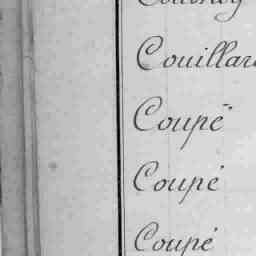 Couillard
Coupé
Coupé
Coupé